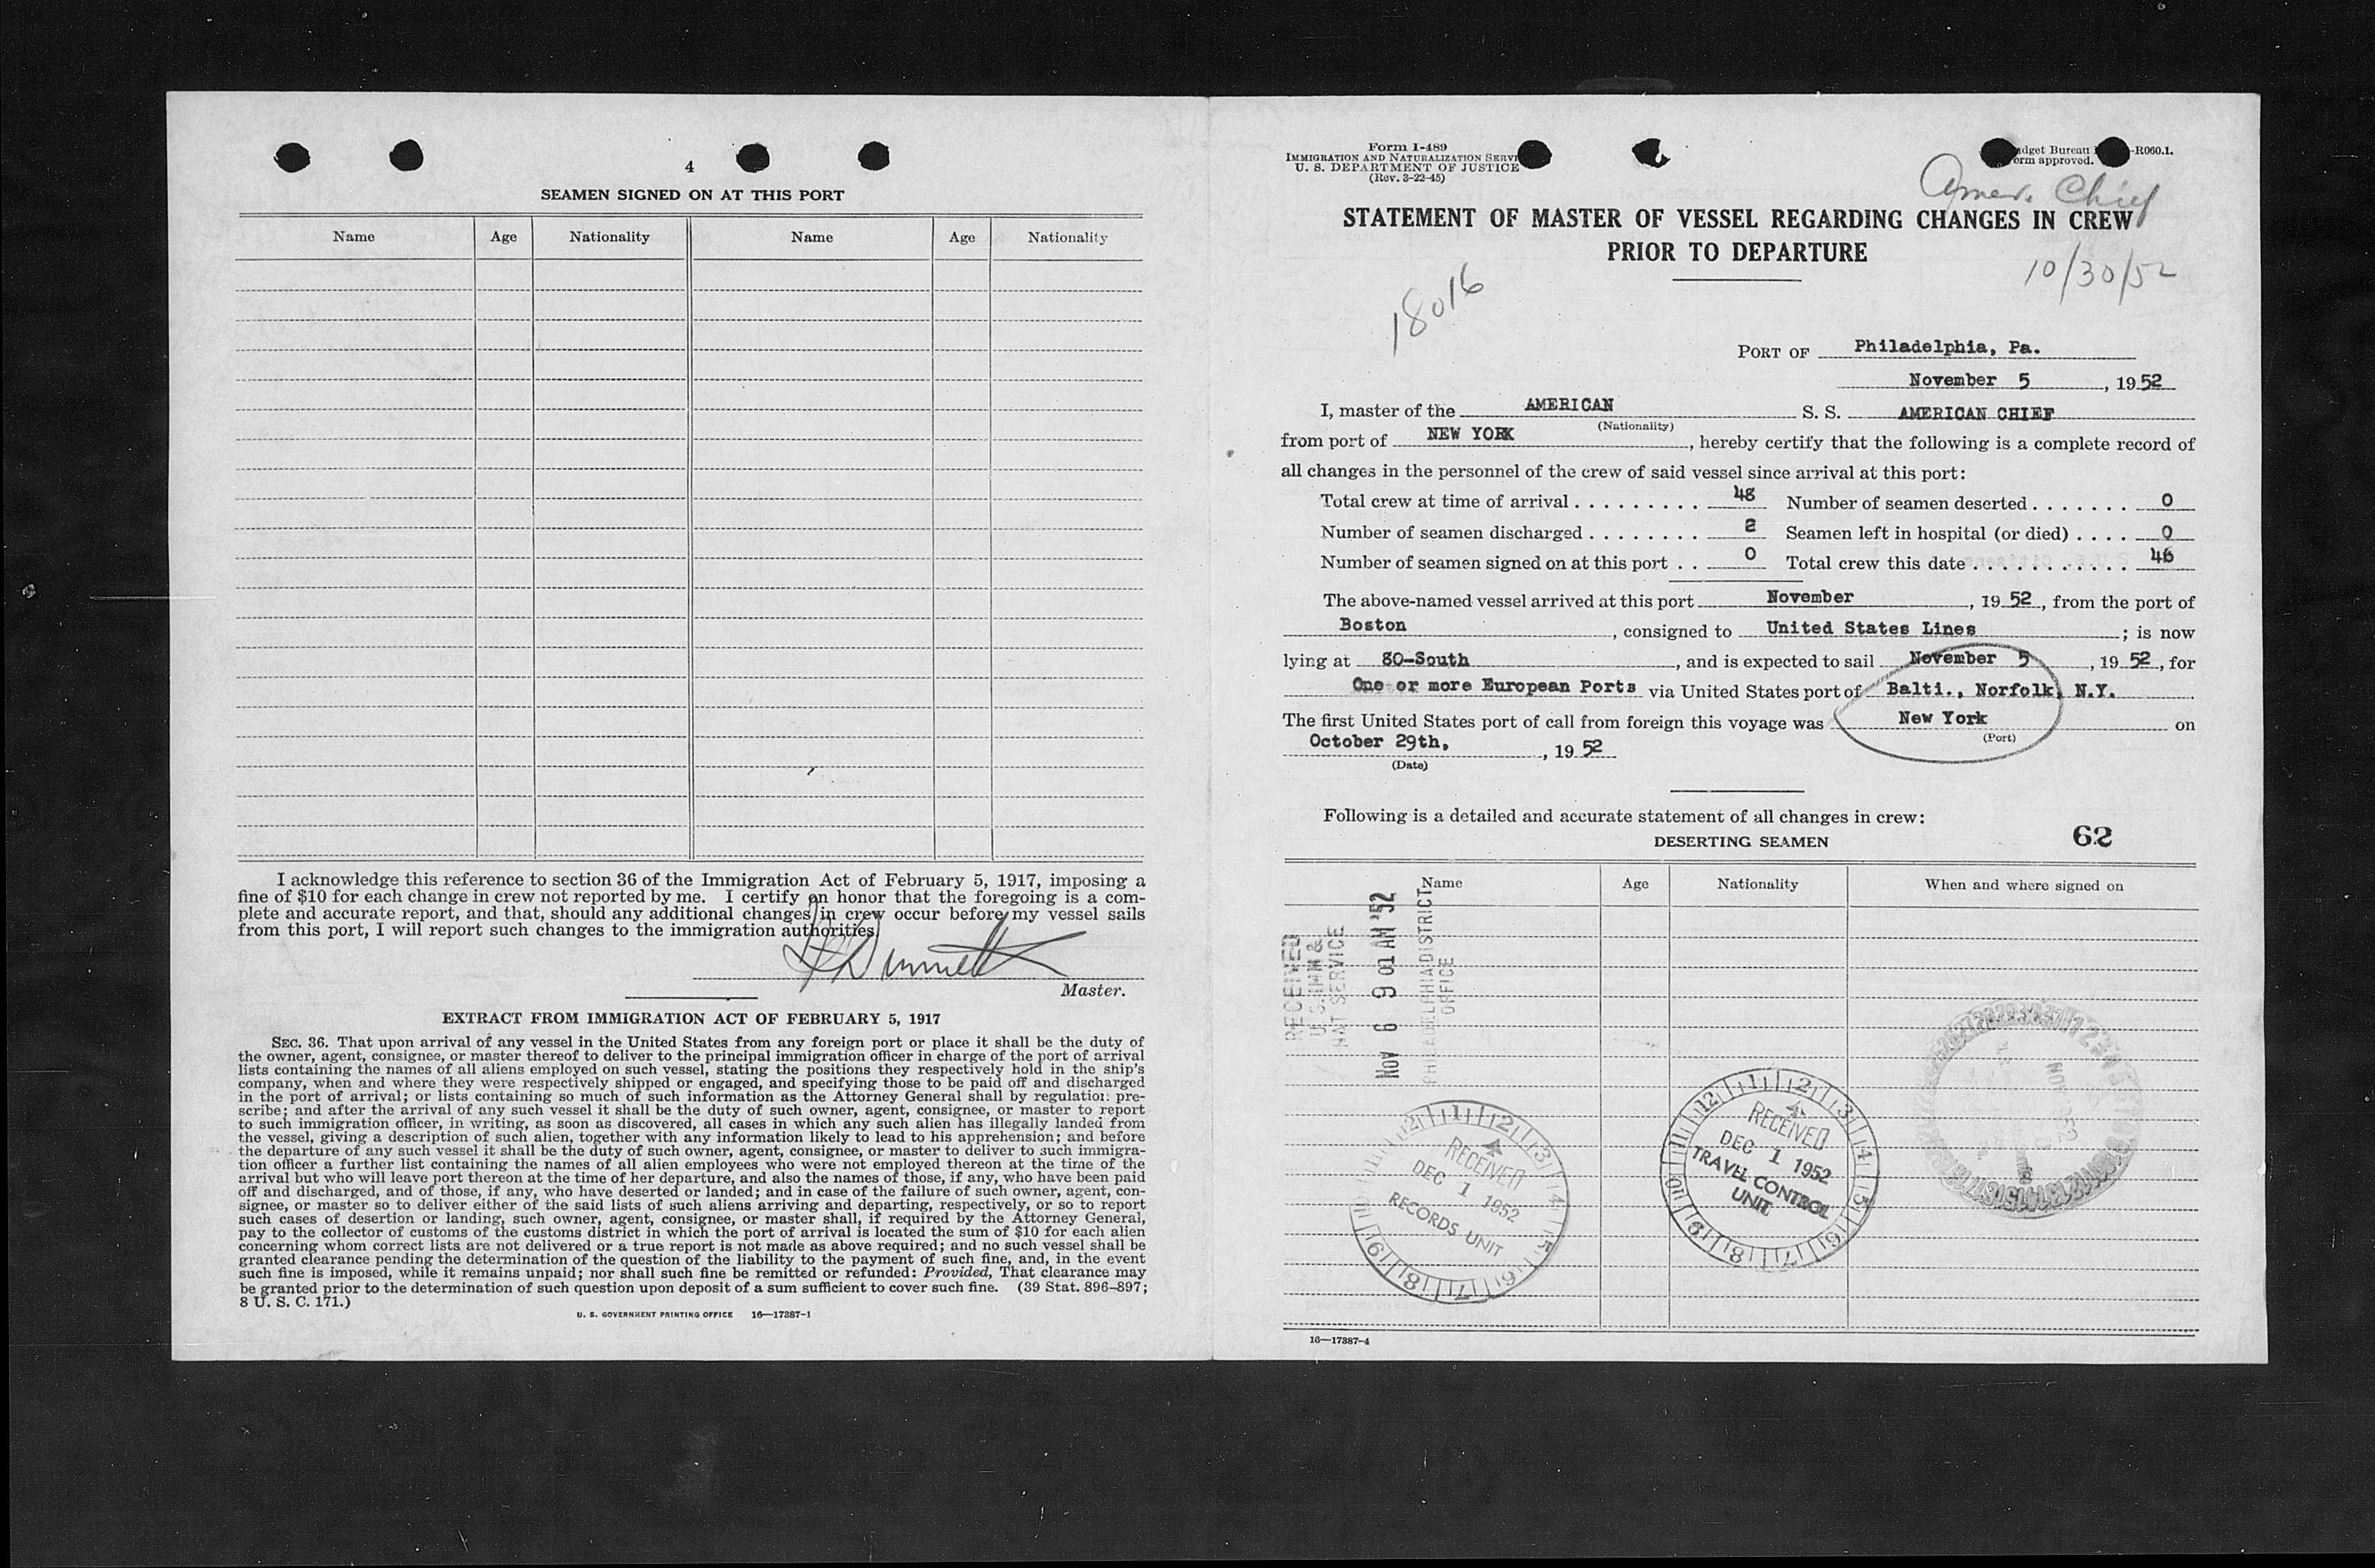 4
SEAMEN SIGNED ON AT THIS PORT
Name Age Nationality Name Age Nationality
I acknowledge this reference to section 36 of the Immigration Act of February 5, 1917, imposing a
fine of $10 for each change in crew not reported by me. I certify on honor that the foregoing is a com-
plete and accurate report, and that, should any additional changes in crew occur before my vessel sails
from this port, I will report such changes to the immigration authorities.
Master.
EXTRACT FROM IMMIGRATION ACT OF FEBRUARY 5, 1917
SEC. 36. That upon arrival of any vessel in the United States from any foreign port or place it shall be the duty of
the owner, agent, consignee, or master thereof to deliver to the principal immigration officer in charge of the port of arrival
lists containing the names of all aliens employed on such vessel, stating the positions they respectively hold in the ship's
company, when and where they were respectively shipped or engaged, and specifying those to be paid off and discharged
in the port of arrival; or lists containing so much of such information as the Attorney General shall by regulation pre-
scribe; and after the arrival of any such vessel it shall be the duty of such owner, agent, consignee, or master to report
to such immigration officer, in writing, as soon as discovered, all cases in which any such alien has illegally landed from
the vessel, giving a description of such alien, together with any information likely to lead to his apprehension; and before
the departure of any such vessel it shall be the duty of such owner, agent, consignee, or master to deliver to such immigra-
tion officer a further list containing the names of all alien employees who were not employed thereon at the time of the
arrival but who will leave port thereon at the time of her departure, and also the names of those, if any, who have been paid
off and discharged, and of those, if any, who have deserted or landed; and in case of the failure of such owner, agent, con-
signee, or master so to deliver either of the said lists of such aliens arriving and departing, respectively, or so to report
such cases of desertion or landing, such owner, agent, consignee, or master shall, if required by the Attorney General,
pay to the collector of customs of the customs district in which the port of arrival is located the sum of $10 for each alien
concerning whom correct lists are not delivered or a true report is not made as above required; and no such vessel shall be
granted clearance pending the determination of the question of the liability to the payment of such fine, and, in the event
such fine is imposed, while it remains unpaid; nor shall such fine be remitted or refunded: Provided, That clearance may
be granted prior to the determination of such question upon deposit of a sum sufficient to cover such fine. (39 Stat. 896-897;
8 U. S. C. 171.)
U. S. GOVERNMENT PRINTING OFFICE 16—17387-1
Form I-489
IMMIGRATION AND NATURALIZATION SERVI
U. S. DEPARTMENT OF JUSTICE
(Rev. 3-22-45)
dget Bureau -R060.1.
orm approved.
Amer. Chief
STATEMENT OF MASTER OF VESSEL REGARDING CHANGES IN CREW
PRIOR TO DEPARTURE
10/30/52
18016
PORT OF Philadelphia, Pa.
November 5, 1952
I, master of the AMERICAN S. S. AMERICAN CHIEF
(Nationality)
from port of NEW YORK, hereby certify that the following is a complete record of
all changes in the personnel of the crew of said vessel since arrival at this port:
Total crew at time of arrival 48 Number of seamen deserted 0
Number of seamen discharged 2 Seamen left in hospital (or died) 0
Number of seamen signed on at this port 0 Total crew this date 46
The above-named vessel arrived at this port November, 1952, from the port of
Boston, consigned to United States Lines; is now
lying at 80-South, and is expected to sail November 5, 1952, for
One or more European Ports via United States port of Balti., Norfolk, N.Y.
The first United States port of call from foreign this voyage was New York on
(Port)
October 29th, 1952
(Date)
Following is a detailed and accurate statement of all changes in crew:
DESERTING SEAMEN
62
Name Age Nationality When and where signed on
RECEIVED
U.S. IMM &
NAT SERVICE
NOV 6 9 01 AM '52
PHILADELPHIA DISTRICT
OFFICE
RECEIVED
DEC 1 1952
RECORDS UNIT
RECEIVED
DEC 1 1952
TRAVEL CONTROL
UNIT
16—17387-4